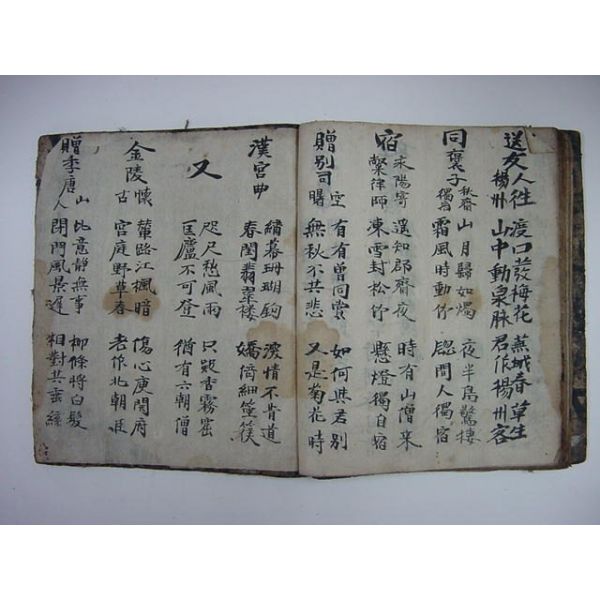 送友人往楊州
渡口發梅花 蕪城春草生
山中動泉脉 君作楊州客
同褒子秋齋獨宿
山月歸如燭 夜半鳥驚棲
霜風時動竹 窓間人獨宿
宿永陽寄槃律師
遥知郡齋夜 時有山僧來
凍雪封松竹 懸燈獨自宿
贈別司空曙
有有曾同賞 如何與君別
無秋不共悲 又是菊花時
漢宮曲
繡幕珊瑚鉤 深情不肯道
春閨翡翠樓 嬌倚細箜篌
又
咫尺愁風雨 只疑香霧密
匡廬不可登 猶有六朝僧
金陵懷古
輦路江楓暗 傷心庾開府
宮庭野草春 老作北朝臣
贈李唐山人
此意靜無事 柳條將白髮
閉門風景遲 相對共垂絲